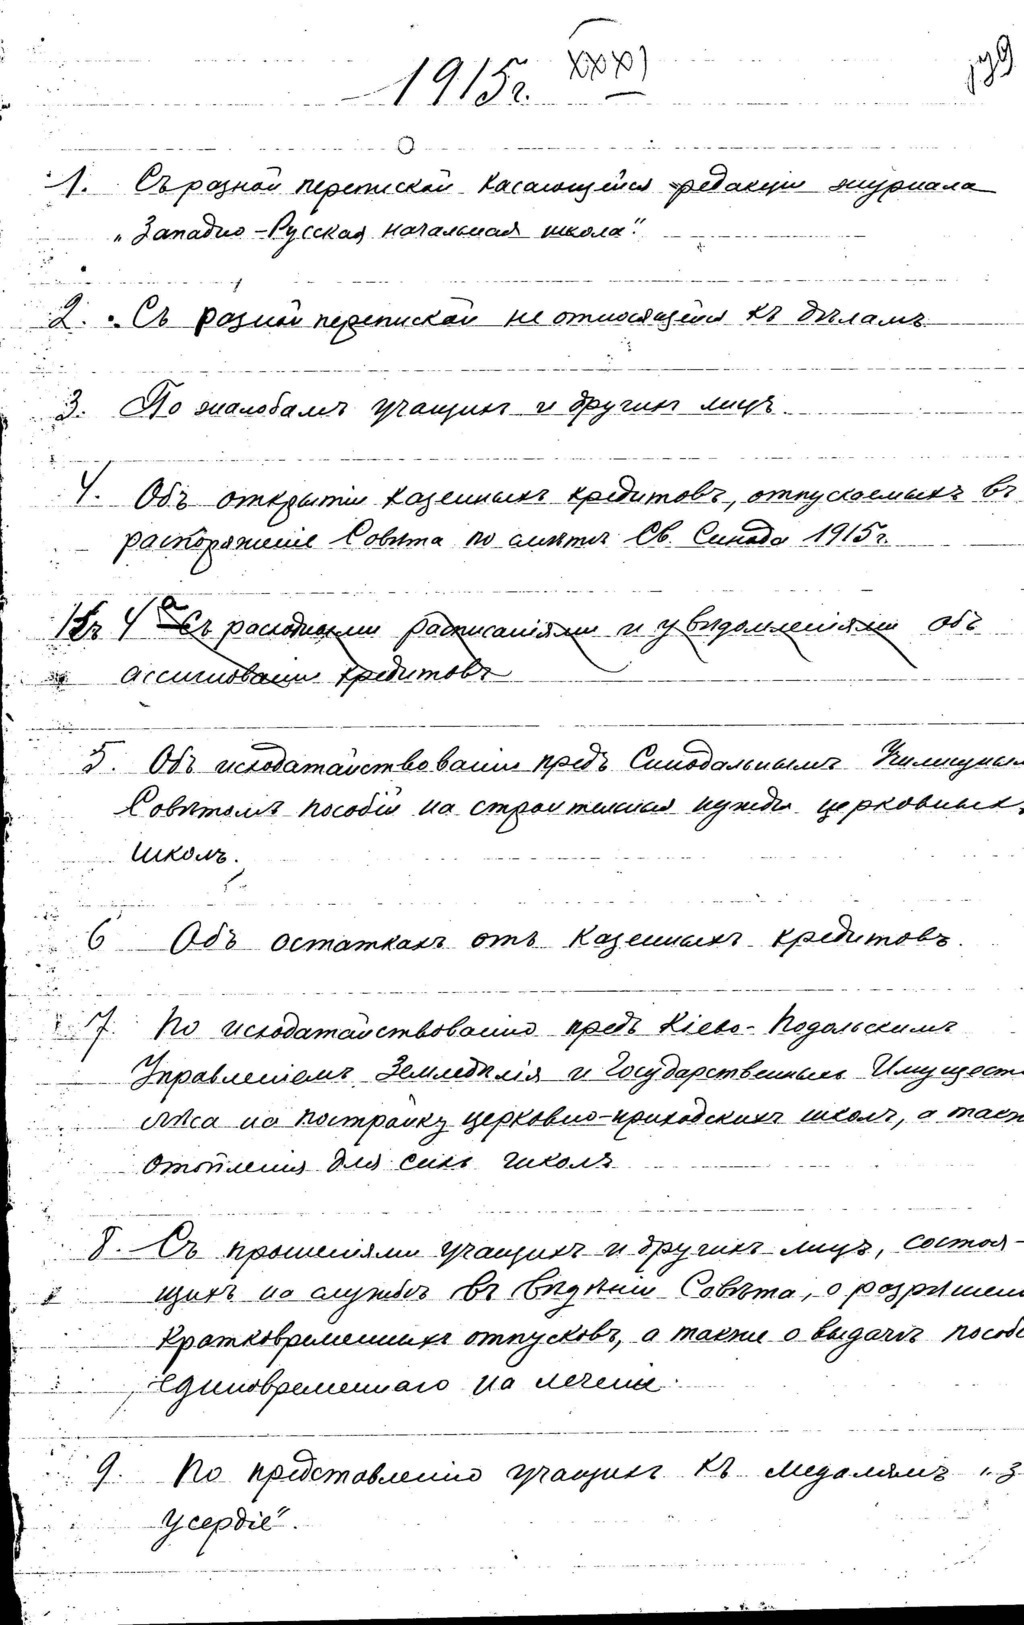 1915г. XXXI
179
1. Съ разной перепиской касающейся редакціи журнала
„Западно-Русская начальная школа".
2. Съ разной перепиской не относящейся къ дѣламъ
3. По жалобамъ учащихъ и другихъ лицъ.
4. Объ открытіи казенныхъ кредитовъ, отпускаемыхъ въ
распоряженіе Совѣта по смѣтѣ Св. Синода 1915г.
4а Съ расходными расписаніями и увѣдомленіями объ
ассигнованіи кредитовъ
5. Объ исходатайствованіи предъ Синодальнымъ Училищным
Совѣтомъ пособій на строительныя нужды церковных
школъ.
6 Объ остаткахъ отъ казенныхъ кредитовъ.
7. По исходатайствованію предъ Кіево-Подольскимъ
Управленіемъ Земледѣлія и Государственныхъ Имущест
лѣса на постройку церковно-приходскихъ школъ, а такж
отопленія для сихъ школъ
8. Съ прошеніями учащихъ и другихъ лицъ, состоя-
щихъ на службѣ въ вѣдѣніи Совѣта, о разрѣшени
кратковременныхъ отпусковъ, а также о выдачѣ пособ
единовременнаго на леченіе.
9. По представленію учащихъ къ медалямъ „з
усердіе".